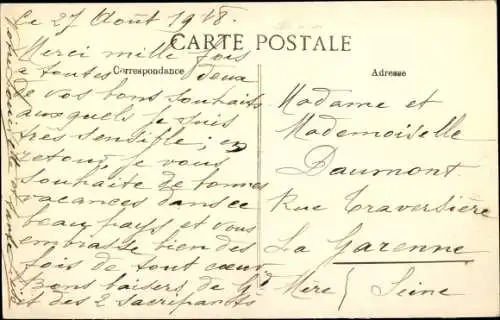 Ce 27 Août 1918.
CARTE POSTALE
Correspondance
Adresse
Merci mille fois
à toutes deux
de vos bons souhaits
auxquels je suis
très sensible, en
retour, je vous
souhaite de bonnes
vacances dans ce
beau pays et vous
embrasse bien des
fois de tout cœur
Bons baisers de Gd Mère
et des 2 sacripants
Madame et
Mademoiselle
Daumont
Rue Traversière
La Garenne
Seine